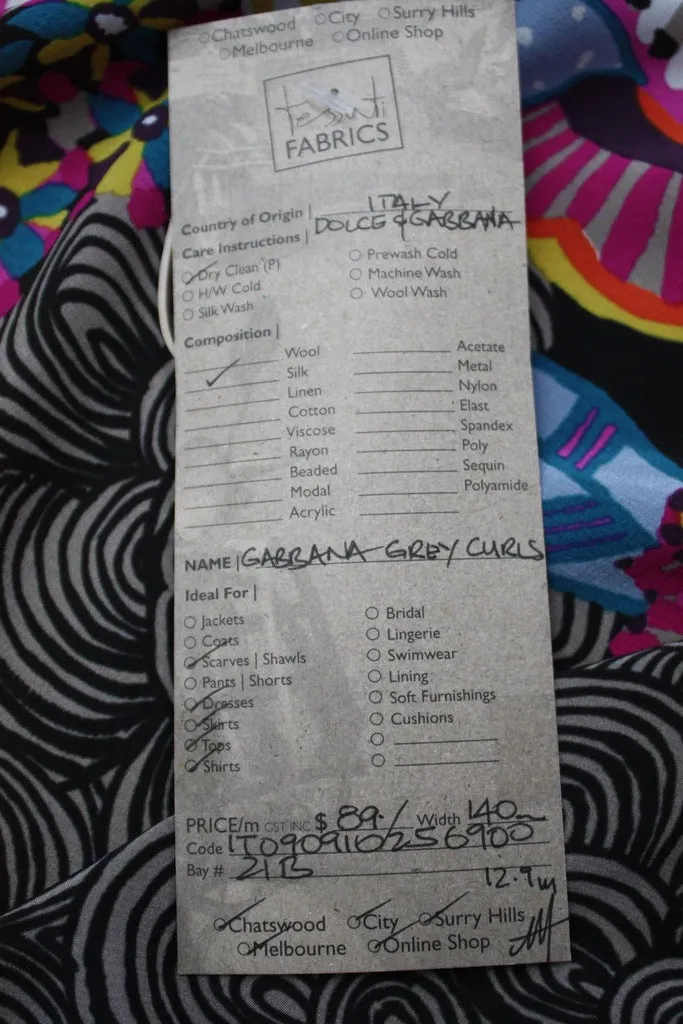 Chatswood City Surry Hills
Melbourne Online Shop
tessuti
FABRICS
Country of Origin | ITALY
DOLCE & GABBANA
Care Instructions |
Dry Clean (P) Prewash Cold
H/W Cold Machine Wash
Silk Wash Wool Wash
Composition |
Wool Acetate
Silk Metal
Linen Nylon
Cotton Elast
Viscose Spandex
Rayon Poly
Beaded Sequin
Modal Polyamide
Acrylic
NAME | GABBANA GREY CURLS
Ideal For |
Jackets Bridal
Coats Lingerie
Scarves | Shawls Swimwear
Pants | Shorts Lining
Dresses Soft Furnishings
Skirts Cushions
Tops
Shirts
PRICE/m GST INC $ 89./ Width 140
Code IT090910256900
Bay # 21B
12.9m
Chatswood City Surry Hills
Melbourne Online Shop